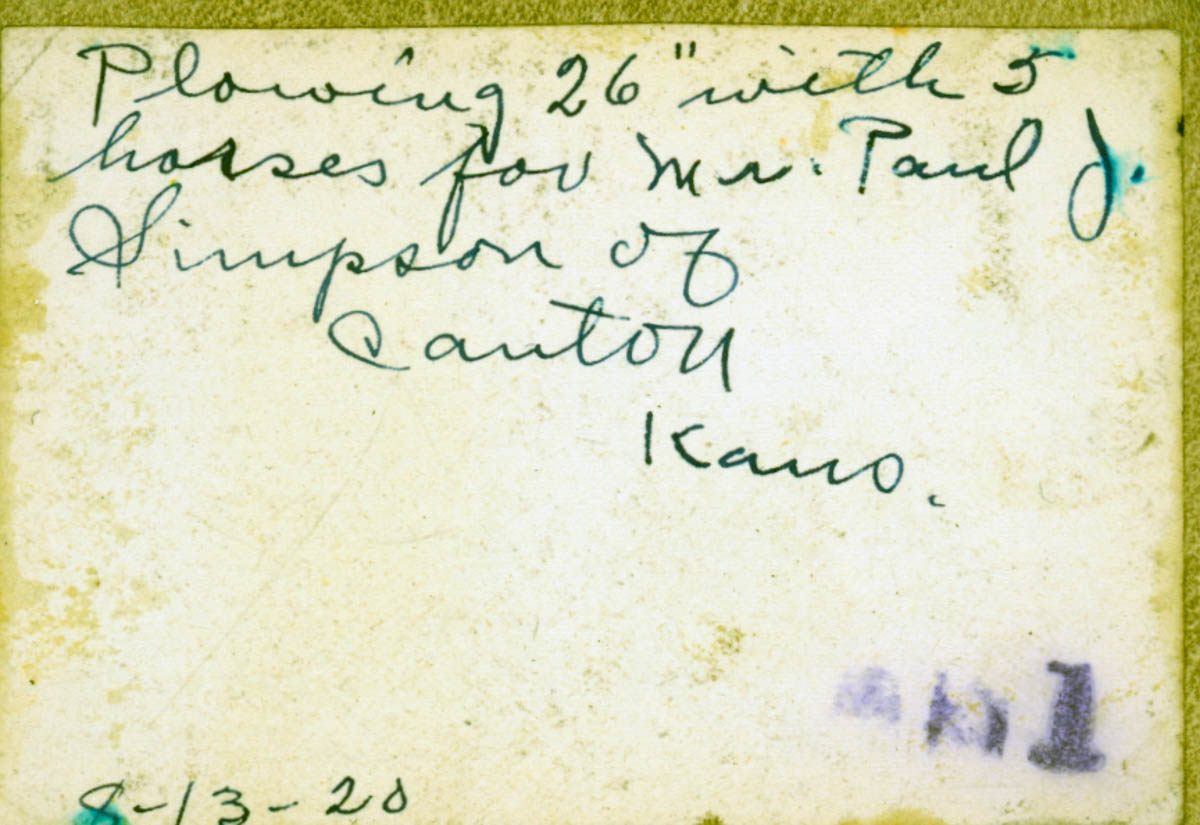 Plowing 26" with 5
horses for Mr. Paul J.
Simpson of
Canton
Kans.
1
8-13-20